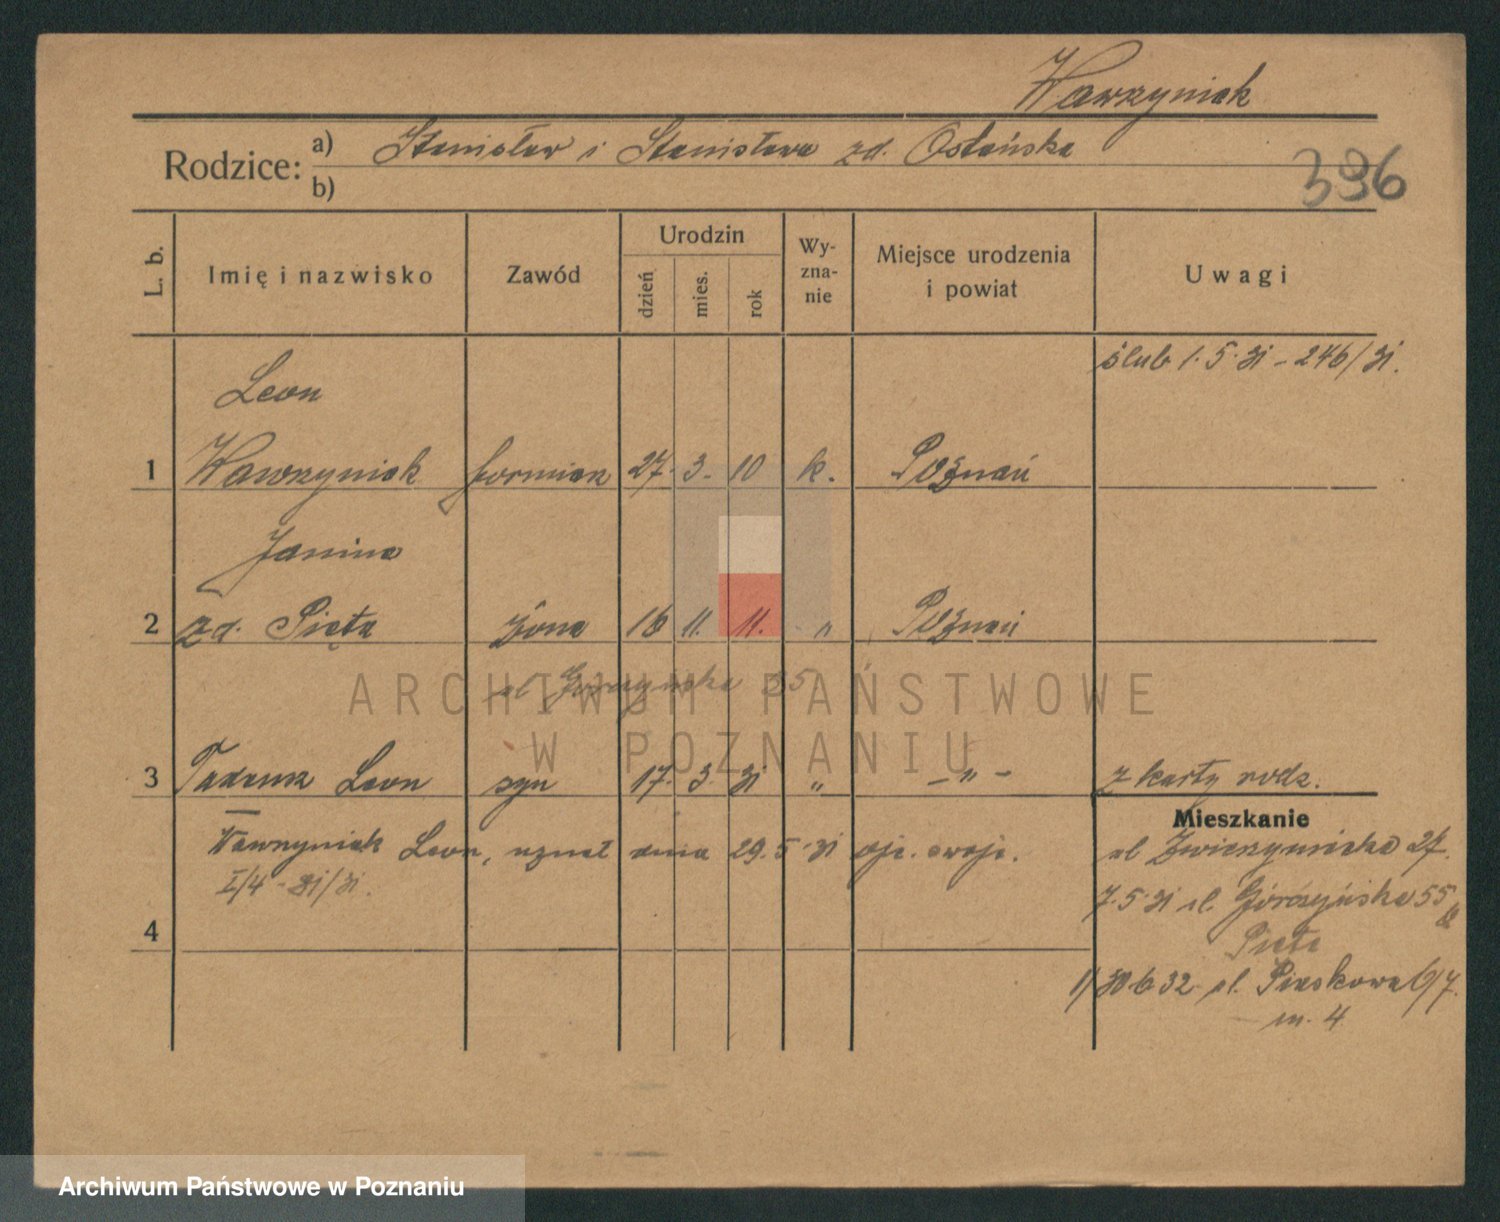 Wawrzyniak
Rodzice: a) Stanisław i Stanisława zd. Ostańska
b)
396
L. b. Imię i nazwisko Zawód Urodzin dzień mies. rok Wy-zna-nie Miejsce urodzenia i powiat Uwagi
ślub 1.5.31 - 246/31.
Leon
1 Wawrzyniak formierz 27. 3. 10 k. Poznań
Janina
2 zd. Pięta żona 16 11. 11. " Poznań
ul Górczyńska 35
3 Tadeusz Leon syn 17. 3. 31 " - " - z karty rodz.
Mieszkanie
Wawrzyniak Leon, uznał dnia 29.5.31 ojc. swoje. ul Zwierzyniecka 27.
I/4 - 31/31. 7.5.31 ul. Górczyńska 55
4 Pięta
1/ 30.6.32 ul. Piaskowa 6/7.
m. 4
ARCHIWUM PAŃSTWOWE
W POZNANIU
Archiwum Państwowe w Poznaniu